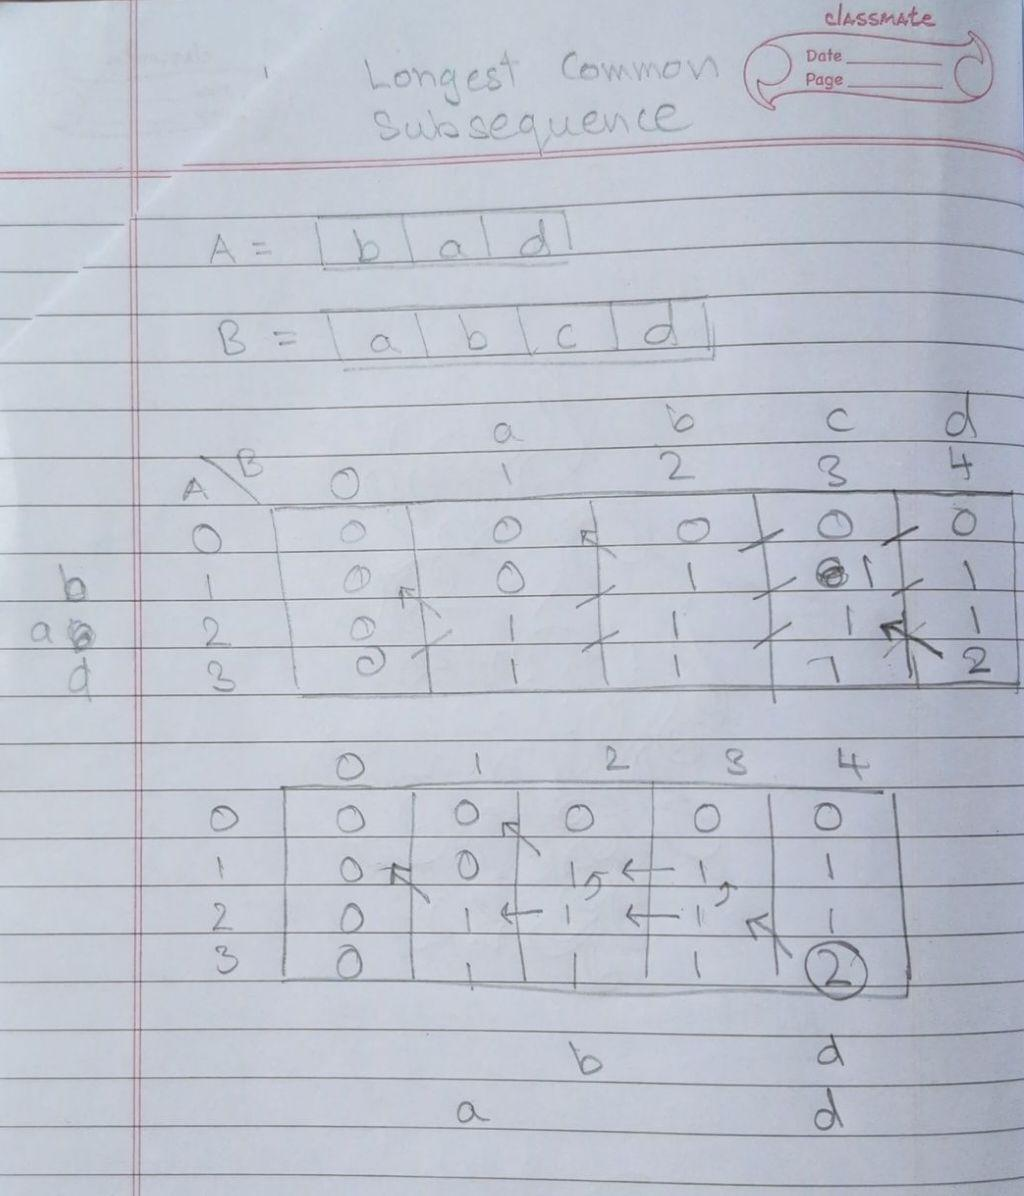 classmate
Date
Page
Longest Common
Subsequence
A = b a d
B = a b c d
a b c d
A \ B 0 1 2 3 4
0 0 0 0 0 0
b 1 0 0 1 1 1
a 2 0 1 1 1 1
d 3 0 1 1 1 2
0 1 2 3 4
0 0 0 0 0 0
1 0 0 1 ← 1 1
2 0 1 ← 1 ← 1 1
3 0 1 1 1 2
b d
a d